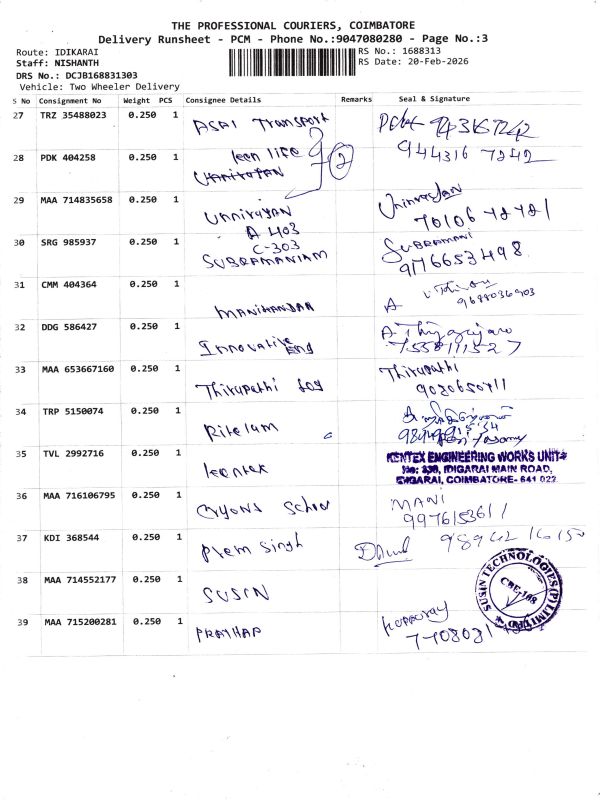 THE PROFESSIONAL COURIERS, COIMBATORE
Delivery Runsheet - PCM - Phone No.:9047080280 - Page No.:3
Route: IDIKARAI
RS No.: 1688313
Staff: NISHANTH
RS Date: 20-Feb-2026
DRS No.: DCJB168831303
Vehicle: Two Wheeler Delivery
S No Consignment No Weight PCS Consignee Details Remarks Seal & Signature
27 TRZ 35488023 0.250 1 ASAI Transport
28 PDK 404258 0.250 1 leen life 2
944316 7242
29 MAA 714835658 0.250 1 UNNIRAYAN
A 403
70106
30 SRG 985937 0.250 1 C-303
SUBRAMANIAM SUBRAMANI
9176653498
31 CMM 404364 0.250 1 A
9688036903
32 DDG 586427 0.250 1 Innovative Eng
7558111527
33 MAA 653667160 0.250 1 Thirupathi Thirupathi
34 TRP 5150074 0.250 1
35 TVL 2992716 0.250 1 KENTEX ENGINEERING WORKS UNIT
No: 238, IDIGARAI MAIN ROAD,
IDIGARAI, COIMBATORE- 641 022
36 MAA 716106795 0.250 1 MANI
9976153611
37 KDI 368544 0.250 1 Prem Singh 98942 16150
38 MAA 714552177 0.250 1 SUSIN
SUSIN TECHNOLOGIES (P) LIMITED
CBE-108
39 MAA 715200281 0.250 1 PRATHAP